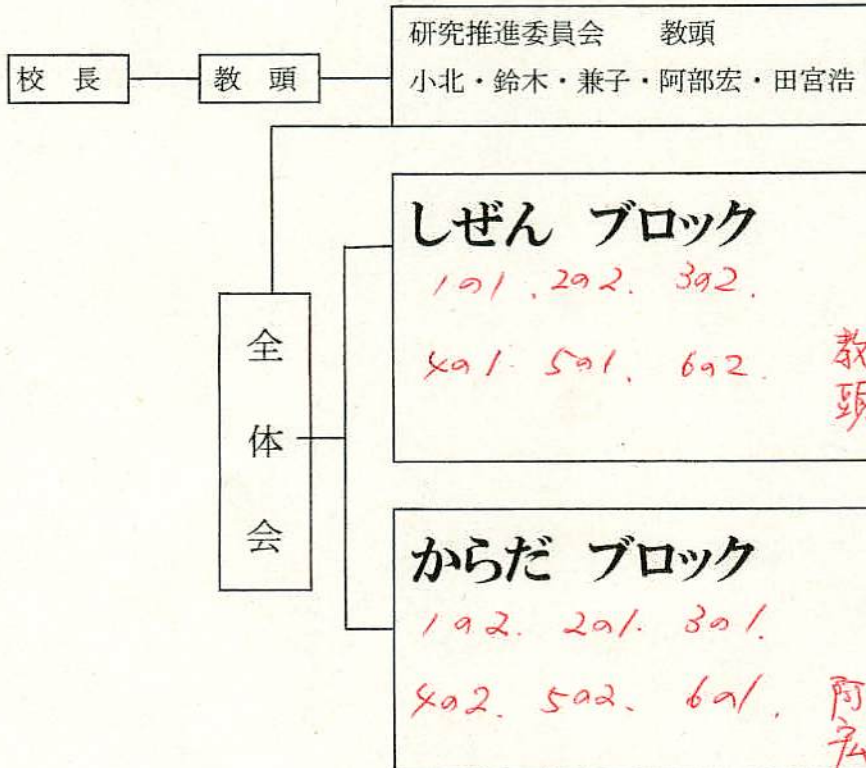 研究推進委員会　　教頭
校　長　教　頭　小北・鈴木・兼子・阿部宏・田宮浩
しぜん ブロック
1の1、2の2、3の2、
4の1、5の1、6の2、教頭
全体会
からだ ブロック
1の2、2の1、3の1、
4の2、5の2、6の1、阿宏